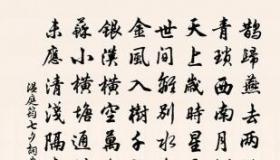 鵲歸燕去兩
青瑣西南月
天上歲時星
世間離別水
金風入樹千
銀漢橫空萬
蘇小橫塘通
未應清淺隔
溫庭筠七夕詞